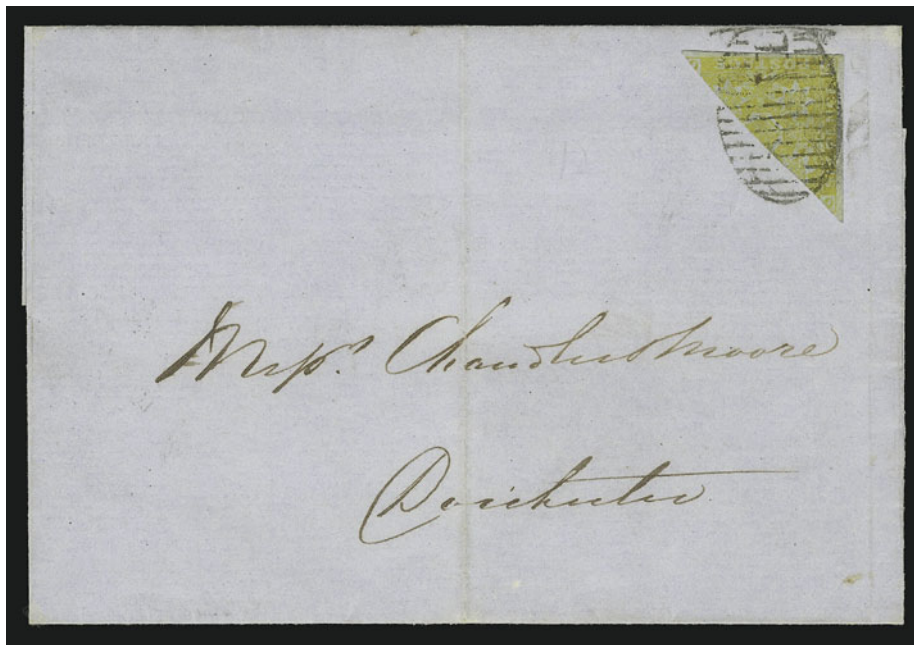 POSTAGE
Messrs. Chandler & Moore
Dorchester